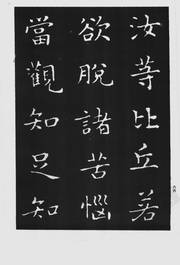 汝等比丘若
欲脱諸苦惱
當觀知足知